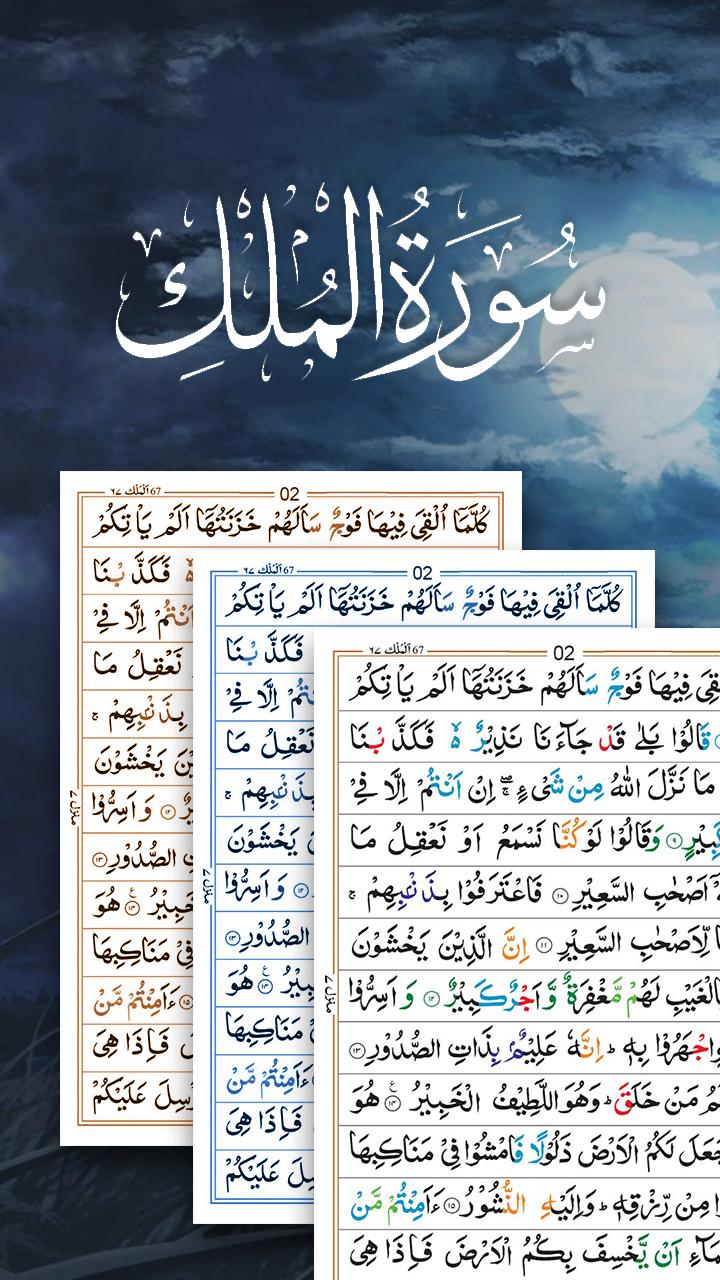 سُورَةُ الْمُلْكِ
02
67 اَلْمُلْك ٦٧
كُلَّمَاۤ اُلْقِىَ فِيْهَا فَوْجٌ سَاَلَهُمْ خَزَنَتُهَاۤ اَلَمْ يَاْتِكُمْ
فَكَذَّبْنَا
اَنْتُمْ اِلَّا فِىْ
نَعْقِلُ مَا
بِذَنْۢبِهِمْ ۚ
يَخْشَوْنَ
وَاَسِرُّوْا
الصُّدُوْرِ ﴿۱۳﴾
هُوَ
فِىْ مَنَاكِبِهَا
﴿۱۵﴾ ءَاَمِنْتُمْ مَّنْ
فَاِذَا هِىَ
عَلَيْكُمْ
منزل ٧
02
67 اَلْمُلْك ٦٧
كُلَّمَاۤ اُلْقِىَ فِيْهَا فَوْجٌ سَاَلَهُمْ خَزَنَتُهَاۤ اَلَمْ يَاْتِكُمْ
فَكَذَّبْنَا
اِلَّا فِىْ
نَعْقِلُ مَا
بِذَنْۢبِهِمْ ۚ
يَخْشَوْنَ
﴿۱۲﴾ وَاَسِرُّوْا
الصُّدُوْرِ ﴿۱۳﴾
هُوَ
مَنَاكِبِهَا
ءَاَمِنْتُمْ مَّنْ
فَاِذَا هِىَ
عَلَيْكُمْ
منزل ٧
02
67 اَلْمُلْك ٦٧
فِيْهَا فَوْجٌ سَاَلَهُمْ خَزَنَتُهَاۤ اَلَمْ يَاْتِكُمْ
قَالُوْا بَلٰى قَدْ جَآءَنَا نَذِيْرٌ ۙ فَكَذَّبْنَا
مَا نَزَّلَ اللّٰهُ مِنْ شَىْءٍ ۚۖ اِنْ اَنْتُمْ اِلَّا فِىْ
كَبِيْرٍ ﴿۹﴾ وَقَالُوْا لَوْ كُنَّا نَسْمَعُ اَوْ نَعْقِلُ مَا
اَصْحٰبِ السَّعِيْرِ ﴿۱۰﴾ فَاعْتَرَفُوْا بِذَنْۢبِهِمْ ۚ
لِّاَصْحٰبِ السَّعِيْرِ ﴿۱۱﴾ اِنَّ الَّذِيْنَ يَخْشَوْنَ
بِالْغَيْبِ لَهُمْ مَّغْفِرَةٌ وَّاَجْرٌ كَبِيْرٌ ﴿۱۲﴾ وَاَسِرُّوْا
اجْهَرُوْا بِهٖ ؕ اِنَّهٗ عَلِيْمٌۢ بِذَاتِ الصُّدُوْرِ ﴿۱۳﴾
مَنْ خَلَقَ ؕ وَهُوَ اللَّطِيْفُ الْخَبِيْرُ ﴿۱۴﴾ هُوَ
جَعَلَ لَكُمُ الْاَرْضَ ذَلُوْلًا فَامْشُوْا فِىْ مَنَاكِبِهَا
مِنْ رِّزْقِهٖ ؕ وَاِلَيْهِ النُّشُوْرُ ﴿۱۵﴾ ءَاَمِنْتُمْ مَّنْ
اَنْ يَّخْسِفَ بِكُمُ الْاَرْضَ فَاِذَا هِىَ
منزل ٧